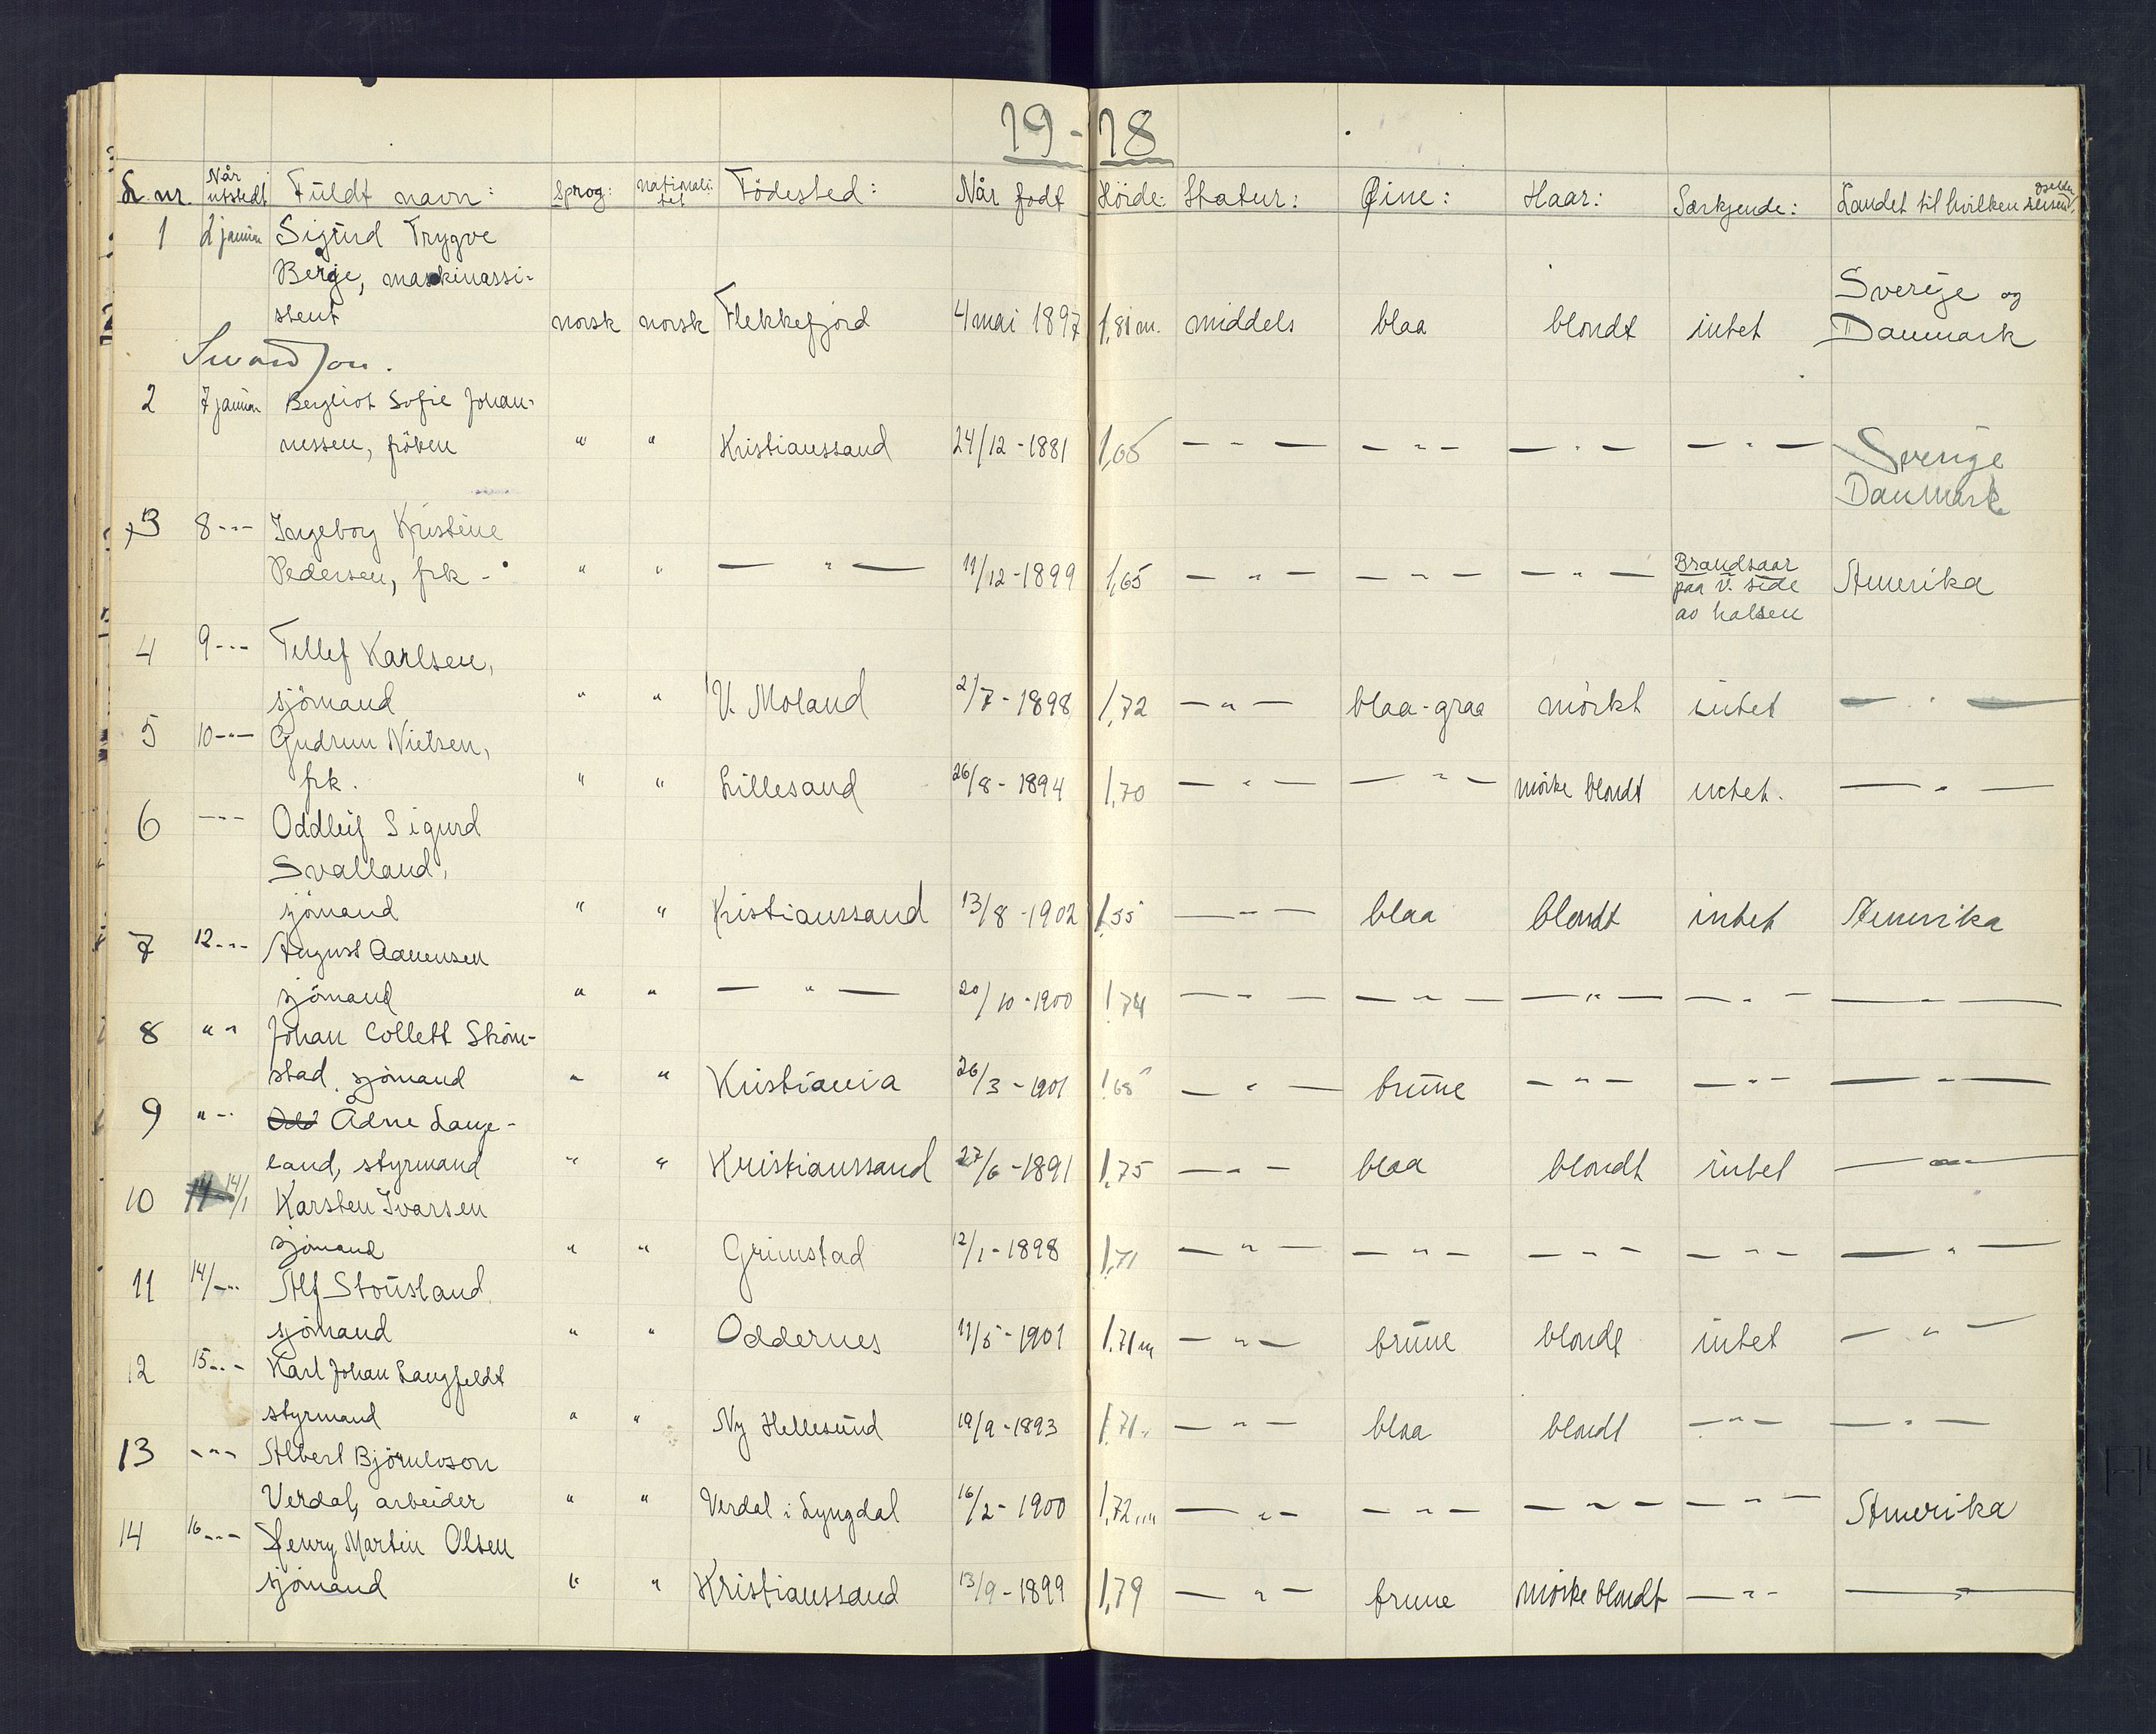 19-18
L. nr. Når utstedt Fuldt navn: Sprog: nationali- tet Födested: Når født Höide: Statur: Øine: Haar: Særkjende: Landet til hvilken reisen
1 2 januar Sigurd Trygve
Berge, maskinassi-
stent norsk norsk Flekkefjord 4 mai 1897 1,81 m. middels blaa blondt intet Sverige og
Danmark
2 7 januar Bergliot Sofie Johan-
nessen, fröken " " Kristianssand 24/12-1881 1,65 — " — — " — — " — — " — Sverige
Danmark
3 8 -"- Ingeborg Kristine
Pedersen, frk - " " — " — 11/12-1899 1,65 — " — — " — — " — Brandsaar
paa v. side
av halsen Amerika
4 9 -"- Tellef Karlsen,
sjömand " " V. Moland 2/7-1898 1,72 — " — blaa-graa mörkt intet — " —
5 10 -"- Gudrun Nielsen,
frk. " " Lillesand 26/8-1894 1,70 — " — — " — mörke blondt intet. — " —
6 -"- Oddleif Sigurd
Svalland,
sjömand " " Kristianssand 13/8-1902 1,55 — " — blaa blondt intet Amerika
7 12 -"- August Aanensen
sjömand " " — " — 20/10-1900 1,74 — " — — " — — " — — " — — " —
8 " " Johan Collett Sköin-
stad, sjömand " " Kristiania 26/3-1901 1,68 — " — brune — " — — " — — " —
9 " " Odd Ådne Lange-
land, styrmand " " Kristianssand 27/6-1891 1,75 — " — blaa blondt intet — " —
10 14/1 Karsten Ivarsen
sjömand " " Grimstad 12/1-1898 1,71 — " — — " — — " — — " — — " —
11 14/-"- Alf Stousland
sjömand " " Oddernes 11/5-1901 1.71 m — " — brune blondt intet — " —
12 15 -"- Karl Johan Langfeldt
styrmand " " Ny Hellesund 19/9-1893 1,71 " — " — blaa blondt — " — — " —
13 -"- Albert Björnulvson
Verdal, arbeider " " Verdal i Lyngdal 16/2-1900 1,72 m — " — — " — — " — — " — Amerika
14 16 -"- Henry Martin Olsen
sjömand " " Kristianssand 13/9-1899 1,79 — " — brune mörke blondt — " — — " —